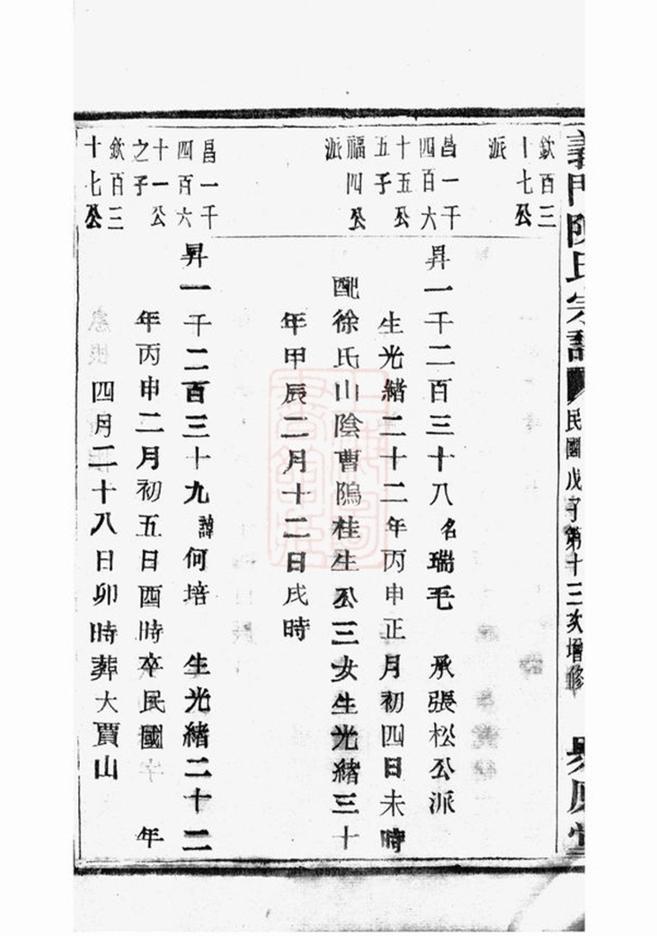 義門陳氏宗譜
民國戊子第十三次增修
欽百三
十七公
派
昌一千
四百六
十五公
五子
福四公
派
昇一千二百三十八名瑞毛 承張松公派
生光緒二十二年丙申正月初四日未時
配徐氏山陰曹隖桂生公三女生光緒三十
年甲辰二月十二日戌時
昌一千
四百六
十一公
之子
欽百三
十七公
昇一千二百三十九諱何培 生光緒二十二
年丙申二月初五日酉時卒民國 年
四月二十八日卯時葬大賈山